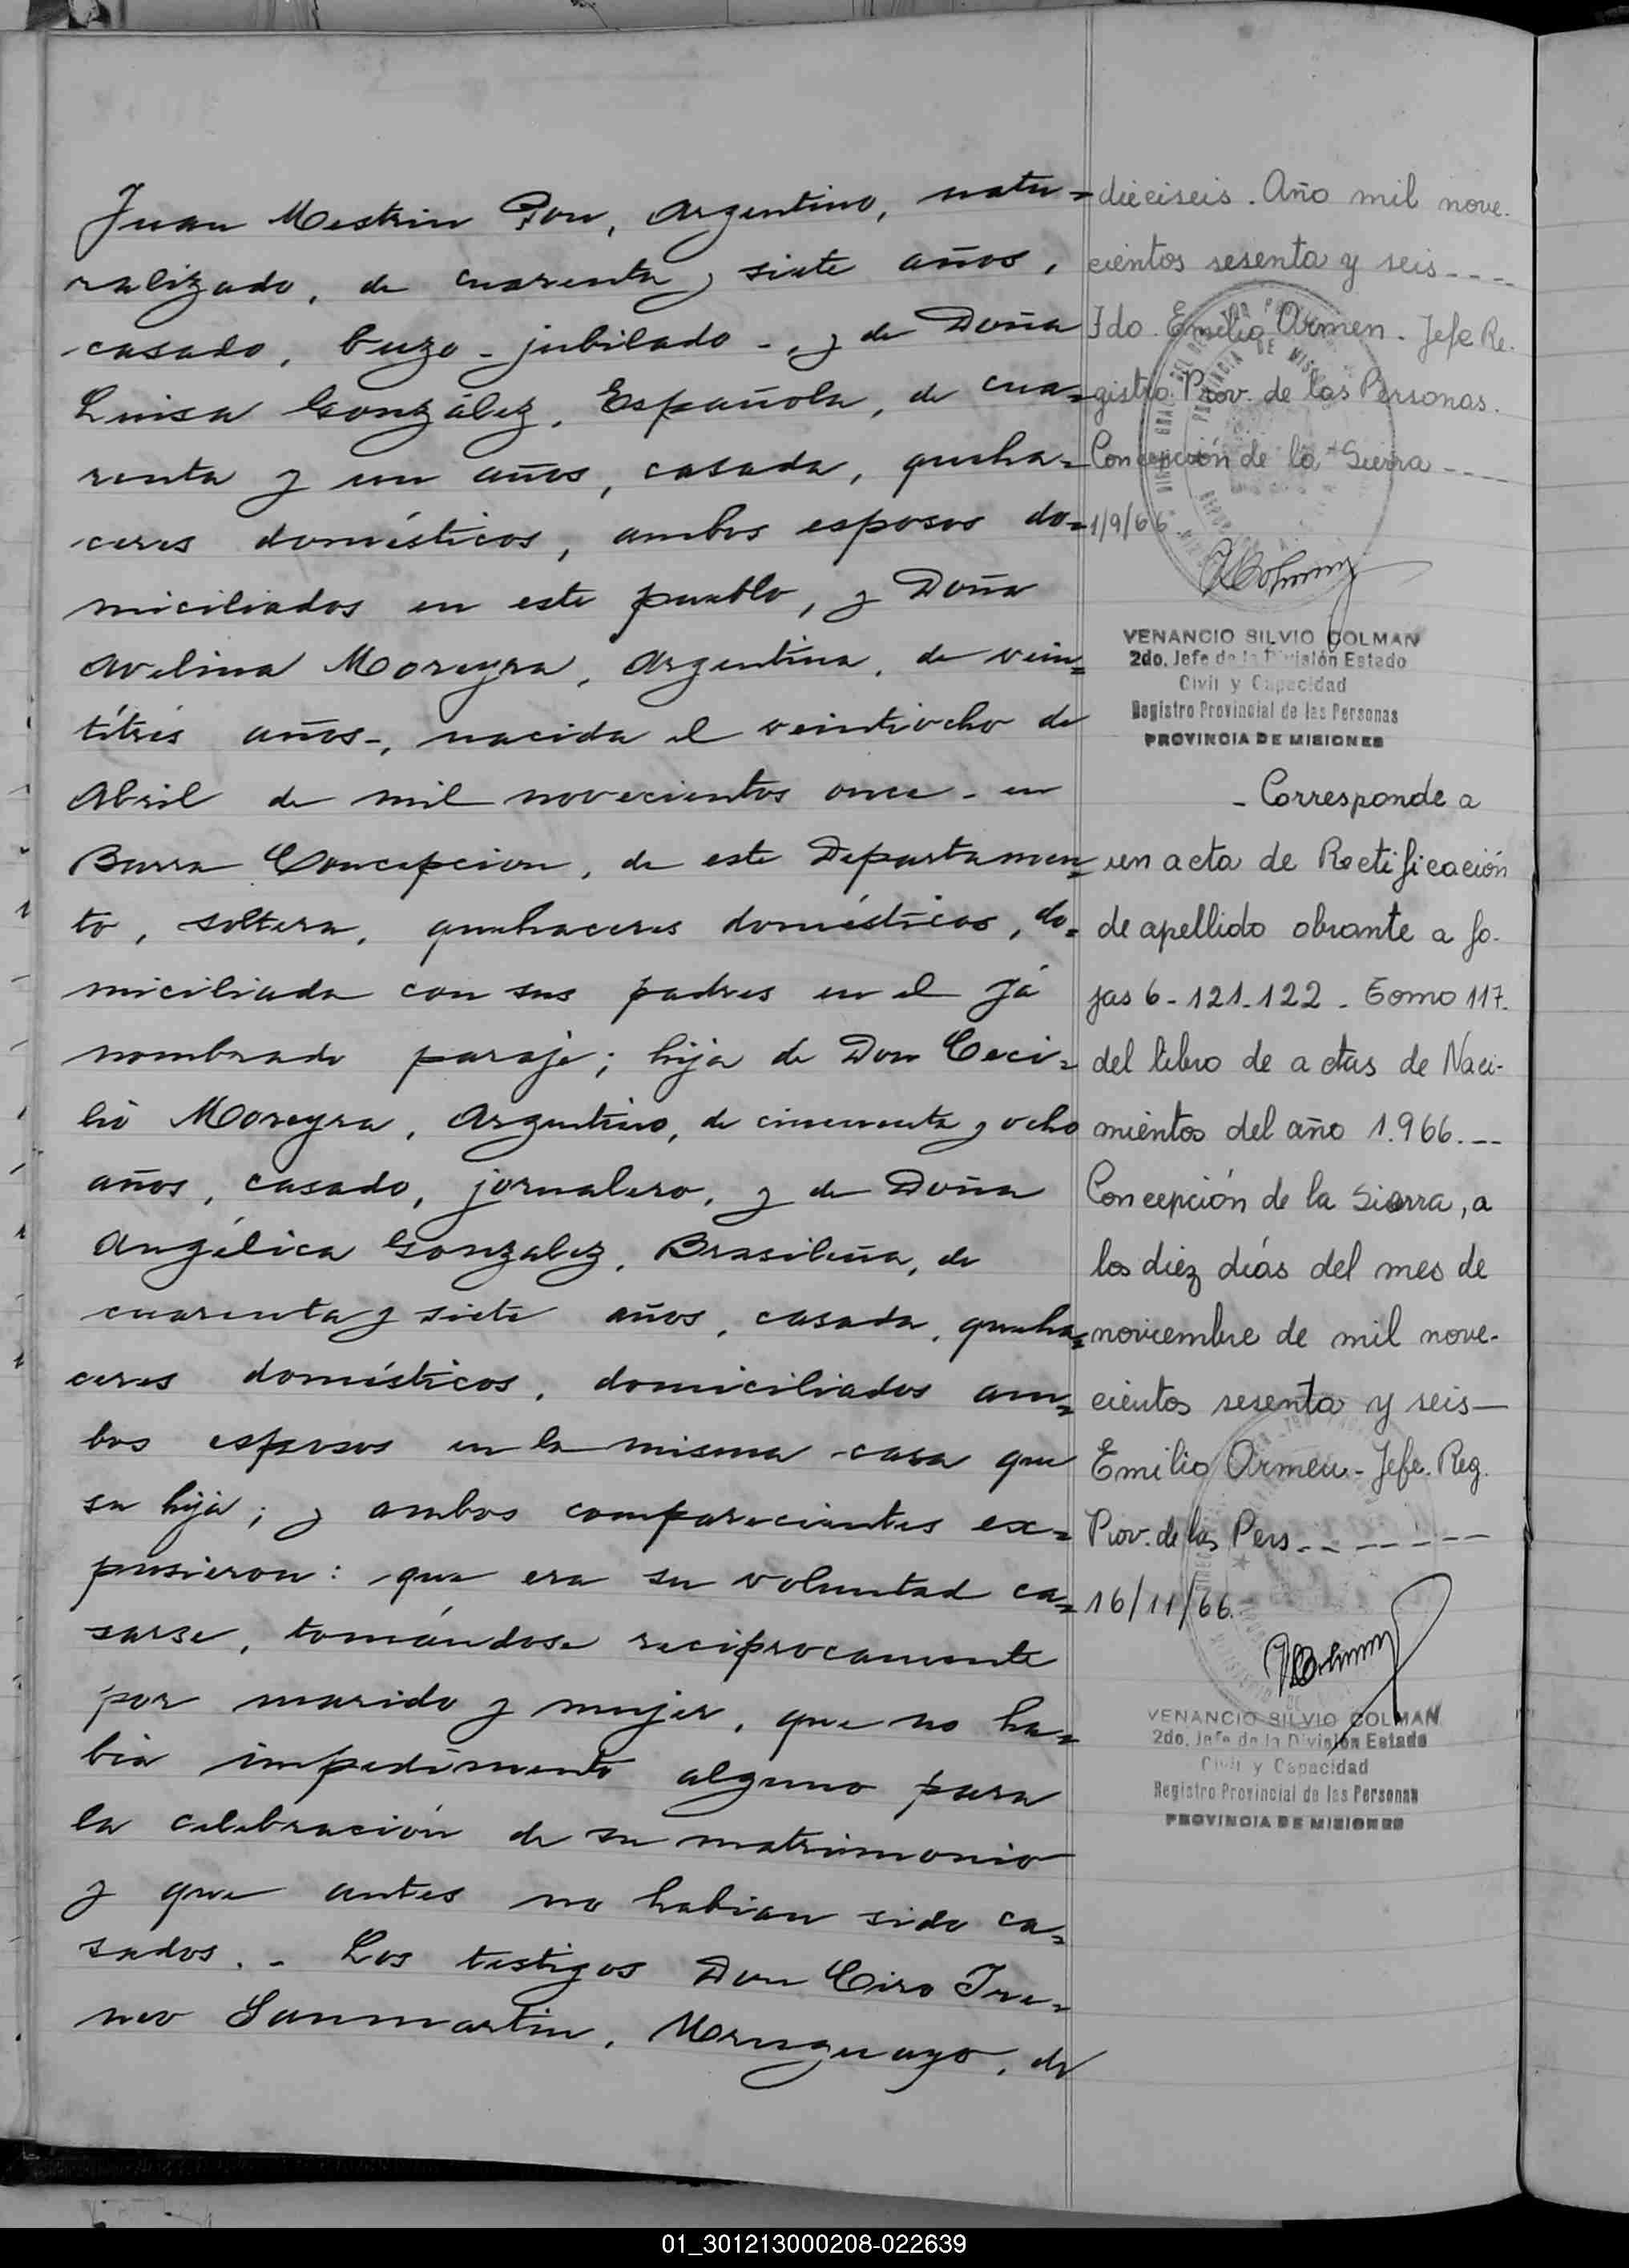 Juan Mestrin Pou, Argentino, natu=
ralizado, de cuarenta y siete años,
casado, buzo - jubilado -, y de Doña
Luisa González, Española, de cua=
renta y un años, casada, queha=
ceres domésticos, ambos esposos do=
miciliados en este pueblo, y Doña
Avelina Moreyra, Argentina, de vein=
titrés años-, nacida el veintiocho de
Abril de mil novecientos once - en
Barra Concepcion, de este Departamen=
to, soltera, quehaceres domésticos, do=
miciliada con sus padres en el ya
nombrado paraje; hija de Don Ceci=
lio Moreyra, Argentino, de cincuenta y ocho
años, casado, jornalero, y de Doña
Angélica Gonzalez, Brasileña, de
cuarenta y siete años, casada, queha=
ceres domésticos, domiciliados am=
bos esposos en la misma casa que
su hija; y ambos comparecientes ex=
pusieron: que era su voluntad ca=
sarse, tomándose reciprocamente
por marido y mujer, que no ha=
bia impedimento alguno para
la celebración de su matrimonio
y que antes no habian sido ca=
sados. - Los testigos Don Ciro Ire=
neo Sanmartin, Uruguayo, de
dieciseis. Año mil nove-
cientos sesenta y seis ----
Fdo. Emilio Armen - Jefe Re-
gistro Prov. de las Personas.
Concepción de la Sierra ---
1/9/66
VENANCIO SILVIO COLMAN
2do. Jefe de la División Estado
Civil y Capacidad
Registro Provincial de las Personas
PROVINCIA DE MISIONES
- Corresponde a
un acta de Rectificación
de apellido obrante a fo-
jas 6 - 121-122 - Tomo 117-
del libro de actas de Naci-
mientos del año 1.966. --
Concepción de la Sierra, a
los diez días del mes de
noviembre de mil nove-
cientos sesenta y seis -
Emilio Armen - Jefe. Reg.
Prov. de las Pers - - - - - - -
16/11/66.
VENANCIO SILVIO COLMAN
2do. Jefe de la División Estado
Civil y Capacidad
Registro Provincial de las Personas
PROVINCIA DE MISIONES
01_301213000208-022639